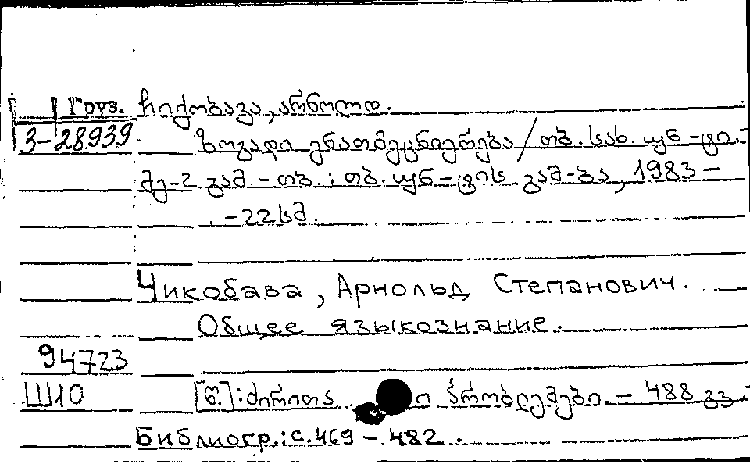 Груз. ჩიქობავა, არნოლდ.
3-28939 ზოგადი ენათმეცნიერება / თბ. სახ. უნ-ტი.-
მე-2 გამ - თბ. : თბ. უნ-ტის გამ-ბა, 1983 -
. - 22 სმ.
Чикобава, Арнольд Степанович.
Общее языкознание.
94723
Ш10 [წ.] : ძირითა ი პრობლემები. - 488 გვ.
Библиогр.: с. 469 - 482.